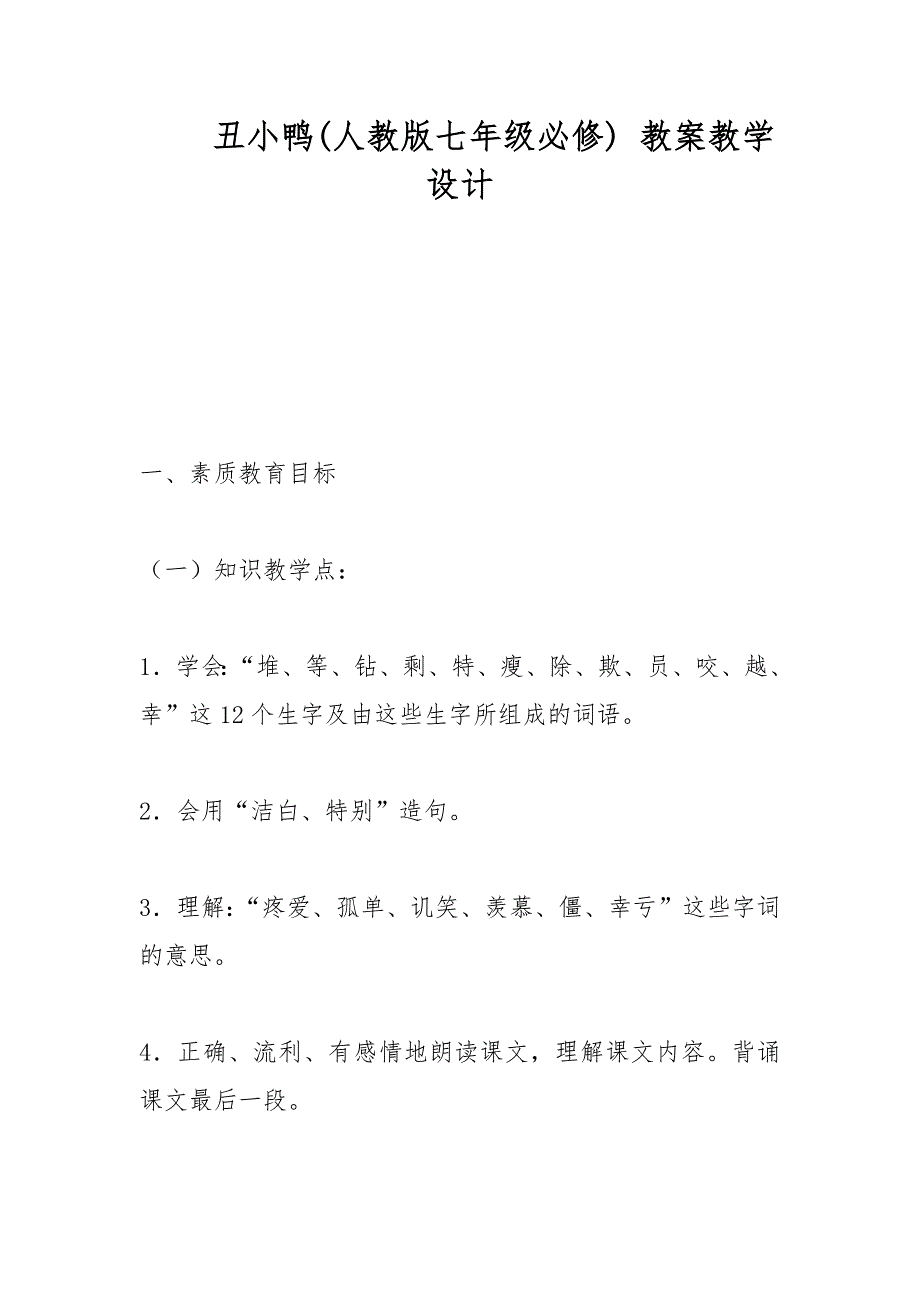 丑小鸭(人教版七年级必修) 教案教学
设计
一、素质教育目标
（一）知识教学点：
1．学会：“堆、等、钻、剩、特、瘦、除、欺、员、咬、越、
幸”这 12 个生字及由这些生字所组成的词语。
2．会用“洁白、特别”造句。
3．理解：“疼爱、孤单、讥笑、羡慕、僵、幸亏”这些字词
的意思。
4．正确、流利、有感情地朗读课文，理解课文内容。背诵
课文最后一段。